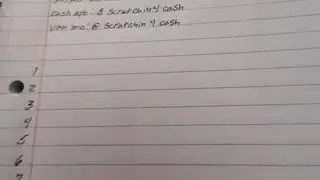 cash app: $ Scratchin 4 cash
Ven mo: @ Scratchin 4 cash
1
2
3
4
5
6
7